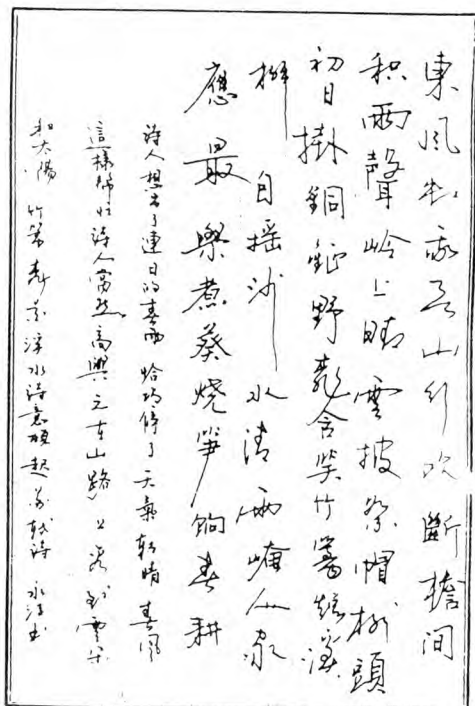 東風知我欲山行吹斷檐間
积雨聲岭上晴雲披絮帽樹頭
初日掛銅鉦野桃含笑竹篱短溪
柳自摇沙水清西崦人家
應最樂煮葵烧笋餉春耕
詩人想去了連日的春雨 恰巧停了 天氣轉晴 春風
這樣幫忙詩人當然高興 走在山路上 看到雲朵
和太陽 竹篱 水詩意頓起 苏軾詩